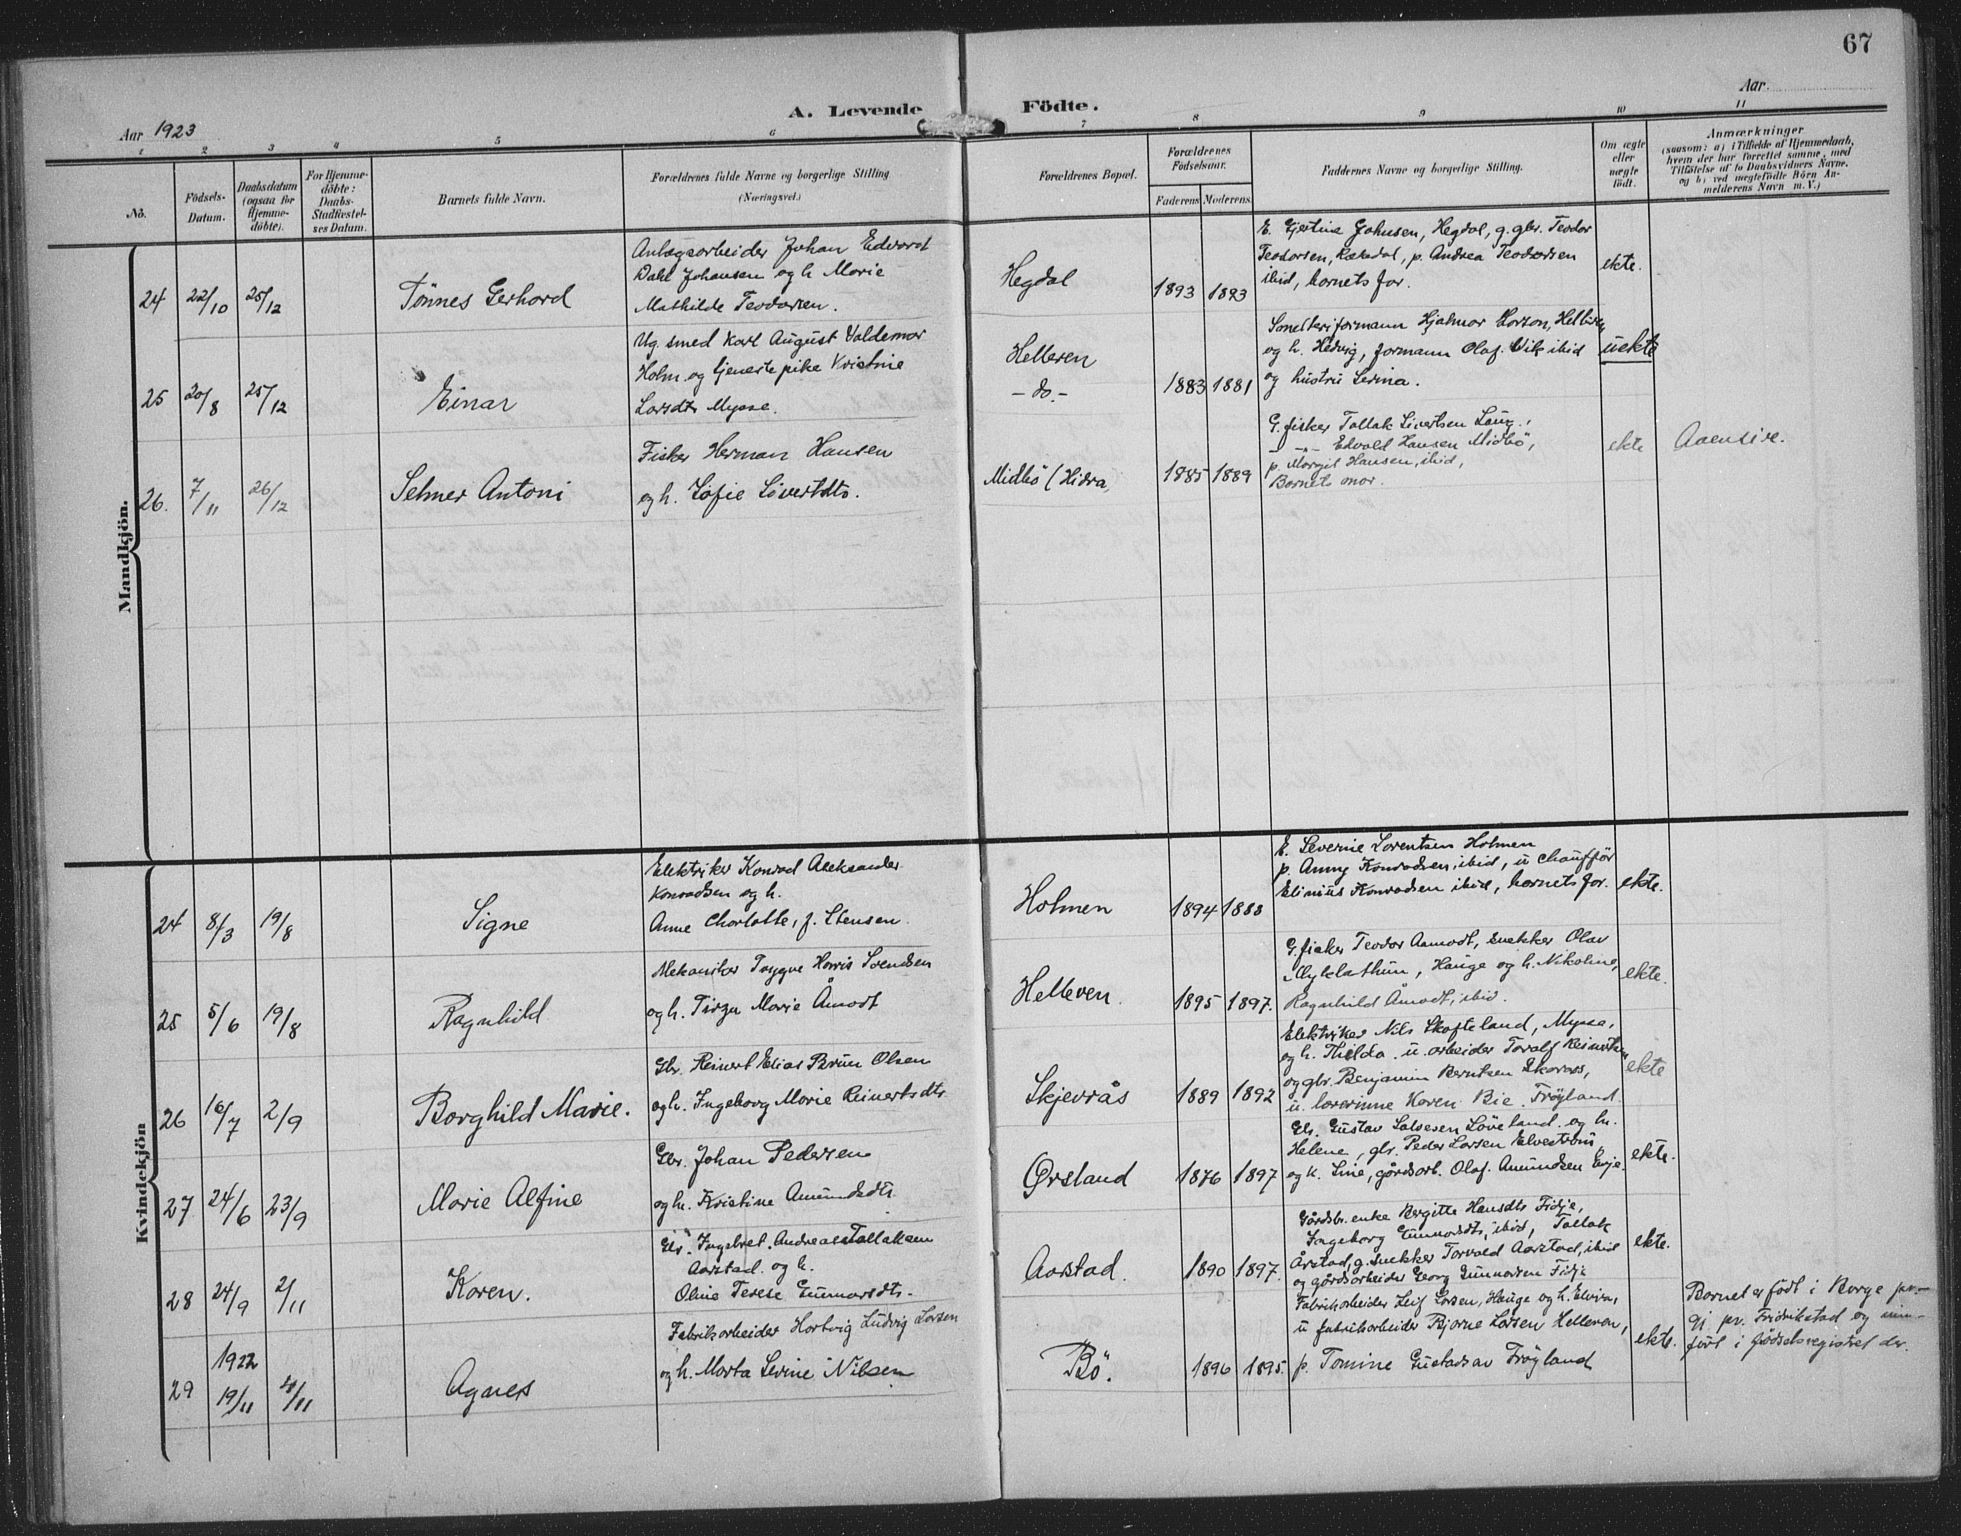 67
A. Levende Födte.
Aar 1923
Aar
1 2 3 4 5 6 7 8 9 10 11
No.
Födsels-
Datum.
Daabsdatum
(ogsaa for
Hjemme-
döbte).
For Hjemme-
döbte:
Daabs-
Stadfæstel-
ses Datum.
Barnets fulde Navn.
Forældrenes fulde Navne og borgerlige Stilling
(Næringsvei.)
Forældrenes Bopæl.
Forældrenes
Födselsaar.
Faderens Moderens
Faddernes Navne og borgerlige Stilling.
Om ægte
eller
uægte
födt.
Anmærkninger
(saasom: a) i Tilfælde af Hjemmedaab,
hvem der har forrettet samme, med
Tilföielse af to Daabsvidners Navne.
og b) ved uægtefödte Börn An-
melderens Navn m. V.)
Mandkjön.
24 22/10 25/12
Tönnes Gerhard
Anlægsarbeider Johan Edvard
Dahl Johansen og h. Marie
Mathilde Teodorsen.
Hegdal
1893 1893
E. Gjertine Johnsen, Hegdal, g. gbr. Teodor
Teodorsen, p. Andrea Teodorsen
ibid, barnets far.
ekte.
25 20/8 25/12
Einar
Ug. smed Karl August Valdemar
Holm og tjenestepike Kristine
Larsdtr Mysse.
Helleren
- do. -
1883 1881
Smelteriformann Hjalmar Larson, Helleren
og h. Hedvig, formann Olaf Vik ibid
og hustru Serina.
uekte
26. 7/11 26/12
Selmer Antoni
Fisker Herman Hansen
og h. Sofie Sivertdtr.
Midbö (Hidra)
1885 1889
G. fisker Tallak Sivertsen
Edvald Hansen Midbö,
p. Margit Hansen, ibid,
Barnets mor.
ekte
Aaensire.
Kvindekjön
24 8/3 19/8
Signe
Elektriker Konrad Aleksander
Konradsen og h.
Anne Charlotte, f. Stensen.
Holmen
1894 1888
E. Severine Lorentsen Holmen
p. Anny Konradsen, ibid, u chauffør
Elinius Konradsen ibid, barnets far.
ekte.
25 5/6 19/8
Ragnhild
Mekaniker Trygve Harris Svendsen
og h. Tirza Marie Åmodt
Helleren.
1895 1897.
G fisker Teodor Aamodt, snekker Olav
Myklathun, Hauge og h. Nikoline,
Ragnhild Åmodt, ibid.
ekte.
26 16/7 2/9
Borghild Marie.
Gbr. Reinert Elias Brun Olsen
og h. Ingeborg Marie Reinertsdtr
Skjevrås
1889 1892
Elektriker Nils Skofteland, Mysse,
og h. Thilda. u. arbeider Toralf Reinertsen
og gbr. Benjamin Berntsen
u. lærerinne Karen Bie. Frøyland
ekte
27 24/6 23/9
Marie Alfine
Gbr. Johan Pedersen
og h. Kristine Amundsdtr
Ørsland
1876 1897
Gbr. Gustav Salvesen Löveland. og h.
Helene, gbr. Peder Larsen Elveström
og h. Sine, gårdsarb. Olaf Amundsen Eije.
ekte.
28 24/9 2/11
Karen.
Gbr. Ingebret Andreas Tallaksen
Aarstad. og h.
Oline Terese Gunnarsdtr.
Aarstad.
1890 1897.
Gårdbr. enke Bergitte Hansdtr Fidje,
Ingeborg Gunnarsdtr, ibid, Tallak
Årstad, g. snekker Torvald Aarstad, ibid
og gårdsarbeider Georg Gunnarsen Fidje
ekte.
29 1922
19/11 4/11
Agnes
Fabrikarbeider Hartvig Ludvig Larsen
og h. Marta Serine Nilsen
Bö.
1896 1895.
Fabrikarbeider Leif Larsen, Hauge og h. Elvira,
u fabrikarbeider Bjarne Larsen Helleren,
p. Tomine Gustadsav Frøyland
ekte.
Barnet er født i Borge pr.-
gj. pr. Fridrikstad og inn-
ført i fødselsregistret der.